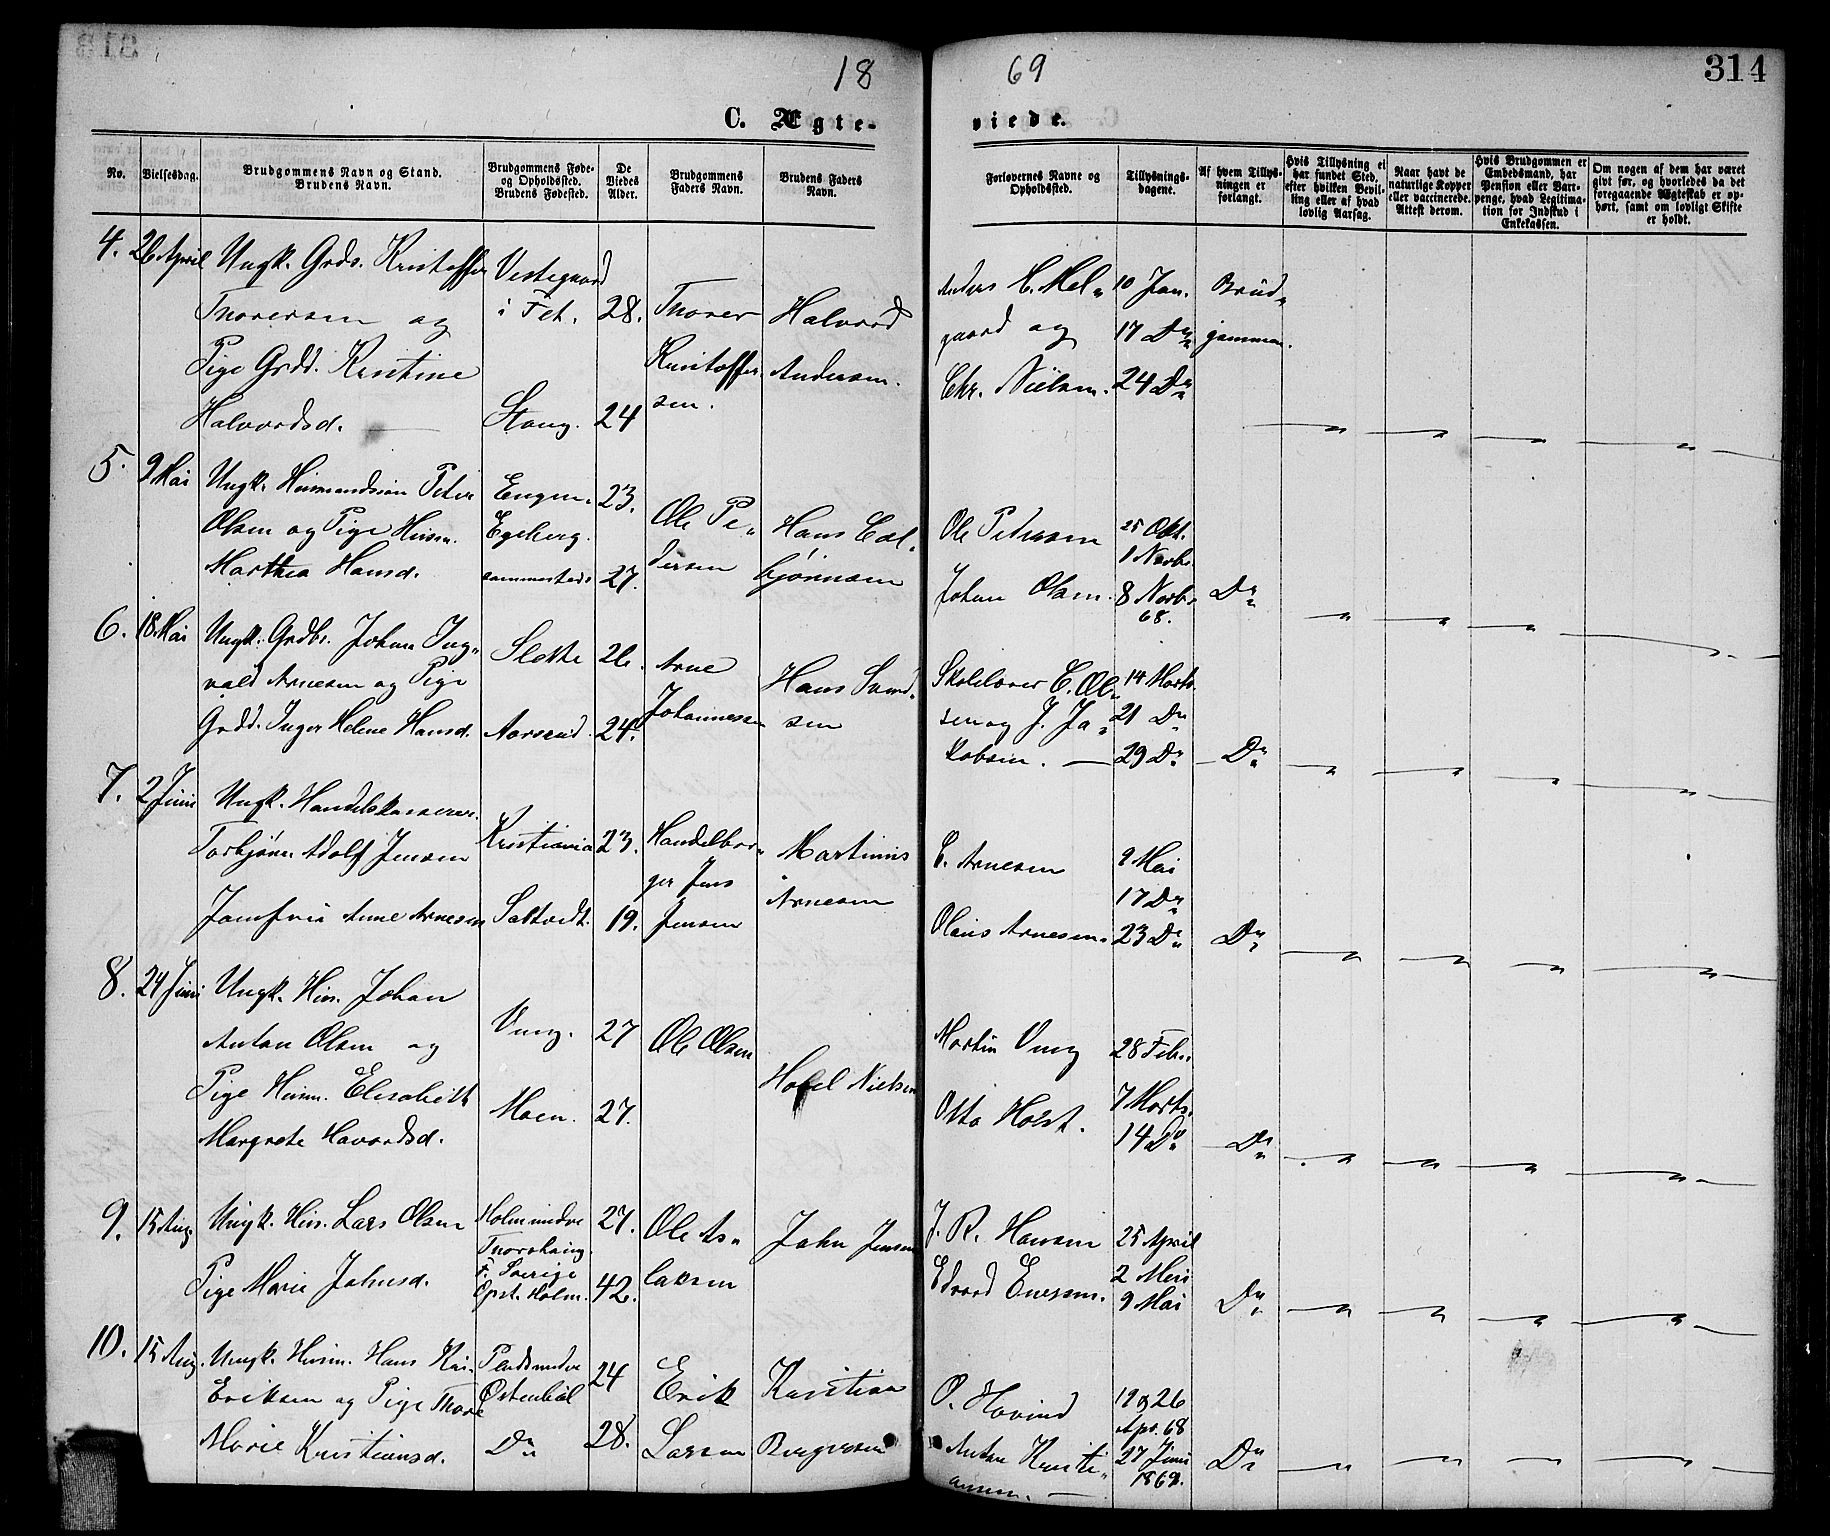 18 69
314
C. Ægte- viede.
No.
Vielsesdag.
Brudgommens Navn og Stand.
Brudens Navn.
Brudgommens Føde-
og Opholdssted.
Brudens Fødested.
De
Viedes
Alder.
Brudgommens
Faders Navn.
Brudens Faders
Navn.
Forlovernes Navne og
Opholdssted.
Tillysnings-
dagene.
Af hvem Tillys-
ningen er
forlangt.
Hvis Tillysning ei
har fundet Sted,
efter hvilken Bevil-
ling eller af hvad
lovlig Aarsag.
Naar havt de
naturlige Kopper
eller vaccinerede.
Attest derom.
Hvis Brudgommen er
Embedsmand, har
Pension eller Vart-
penge, hvad Legitima-
tion for Indskud i
Enkekassen.
Om nogen af dem har været
givt før, og hvorledes da det
foregaaende Ægteskab er op-
hørt, samt om lovligt Skifte
er holdt.
4. 26 April Ungk. Grds. Kristoffer
Thorersen og
Pige Grdd. Kristine
Halvordsd.
Vestegaard
i Fet. 28.
Stang. 24
Thorer
Kristoffer-
sen.
Halvord
Andersen.
Anders H. Mel-
gaard og
Chr. Nielsen.
10 Jan.
17 Do
24 Do
Brud-
gommen.
5. 9 Mai Ungk. Husmandssøn Peter
Olsen og Pige Husm.
Marthea Hansd.
Engen-
Egeberg. 23.
sammesteds 27.
Ole Pe-
dersen
Hans Col-
bjørnsen
Ole Pedersen
Johan Olsen.
25 Okt.
1 Novbr.
8 Novbr.
68.
Do
6. 18. Mai Ungk. Grdbr. Johan Ing-
vald Arnesen og Pige
Grdd. Inger Helene Hansd.
Slette 26.
Aarsrud. 24.
Arne
Johannessen
Hans Svend-
sen
Skolelærer C. Ol-
sen og J. Ja-
kobsen.
14 Marts.
21 Do
29 Do
Do
7. 2 Juni Ungk. Handelskasserer
Torbjørn Adolf Jensen
Jomfru Anne Arnesen
Kristiania 23.
Saktvedt. 19.
Handelbor-
ger Jens
Jensen
Martinus
Arnesen
E. Arnesen
Olaus Arnesen.
9 Mai
17 Do
23 Do
Do
8. 24 Juni Ungk. Hus. Johan
Anton Olsen og
Pige Husm. Elisabeth
Margrete Havordsd.
Vung. 27
Moen. 27.
Ole Olsen
Nielsen
Martin Vung
Otto Holst.
28 Feb.
7 Marts.
14 Do
Do
9. 15 Aug. Ungk. Hus. Lars Olsen
Pige Marie Johnsd.
Holm 27.
F. Sverige
Opst. Holm. 42.
Ole As-
laksen
John Jensen
J. R. Hansen
Edvard Enersen.
25 April
2 Mai
9 Mai
Do
10. 15 Aug. Ungk. Husm. Hans Kri.
Eriksen og Pige Thore
Marie Kristiansd.
24
Do 28.
Erik
Larsen
Kristian
O. Hovind
Anton Kristi-
ansen.
19 og 26
Apr. 68
27 Juni
1869.
Do